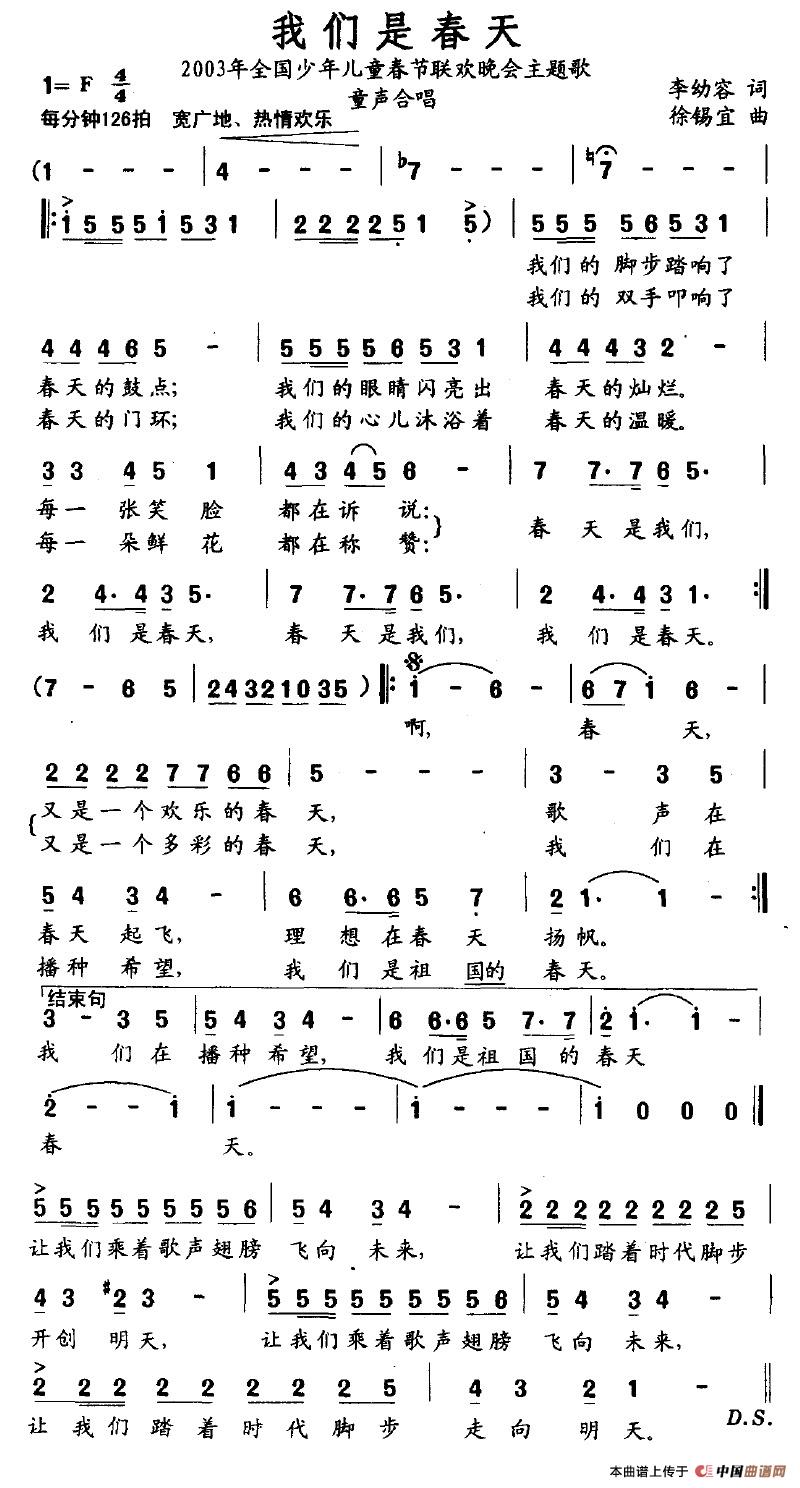 我们是春天
2003年全国少年儿童春节联欢晚会主题歌
1= F 4/4
童声合唱
李幼容 词
每分钟126拍 宽广地、热情欢乐
徐锡宜 曲
(1 - - - | 4 - - - | ♭7 - - - | ♮7 - - - |
‖: i 5 5 5 5 i 5 3 1 | 2 2 2 2 2 5 1 5 ) | 5 5 5 5 5 6 5 3 1 |
我们的 脚步踏响了
我们的 双手叩响了
4 4 4 6 5 - | 5 5 5 5 6 5 3 1 | 4 4 4 3 2 - |
春天的鼓点; 我们的眼睛闪亮出 春天的灿烂。
春天的门环; 我们的心儿沐浴着 春天的温暖。
3 3 4 5 1 | 4 3 4 5 6 - | 7 7· 7 6 5· |
每一 张笑 脸 都在诉 说: 春 天是我们,
每一 朵鲜 花 都在称 赞:
2 4· 4 3 5· | 7 7· 7 6 5· | 2 4· 4 3 1· :‖
我 们 是春天, 春 天是我们, 我 们 是春天。
(7 - 6 5 | 2 4 3 2 1 0 3 5 ) ‖: i - 6 - | 6 7 i 6 - |
啊, 春 天,
2 2 2 2 7 7 6 6 | 5 - - - | 3 - 3 5 |
又是一个欢乐的春 天, 歌 声在
又是一个多彩的春 天, 我 们在
5 4 3 4 - | 6 6· 6 5 7 | 2 1· 1 - :‖
春天 起飞, 理 想在春 天 扬帆。
播种 希望, 我 们是祖 国的 春天。
结束句
3 - 3 5 | 5 4 3 4 - | 6 6· 6 5 7· 7 | 2 i· i - |
我 们在 播种希望, 我们是祖 国 的春天
2 - - i | i - - - | i - - - | i 0 0 0 ‖
春 天。
5 5 5 5 5 5 5 5 6 | 5 4 3 4 - | 2 2 2 2 2 2 2 2 5 |
让我们乘着歌声翅膀 飞向 未来, 让我们踏着时代脚步
4 3 #2 3 - | 5 5 5 5 5 5 5 5 6 | 5 4 3 4 - |
开创 明天, 让我们乘着歌声翅膀 飞向 未来,
2 2 2 2 2 2 2 2 5 | 4 3 2 1 - ‖
让 我们 踏着时代脚步 走向 明天。
D.S.
本曲谱上传于 中国曲谱网